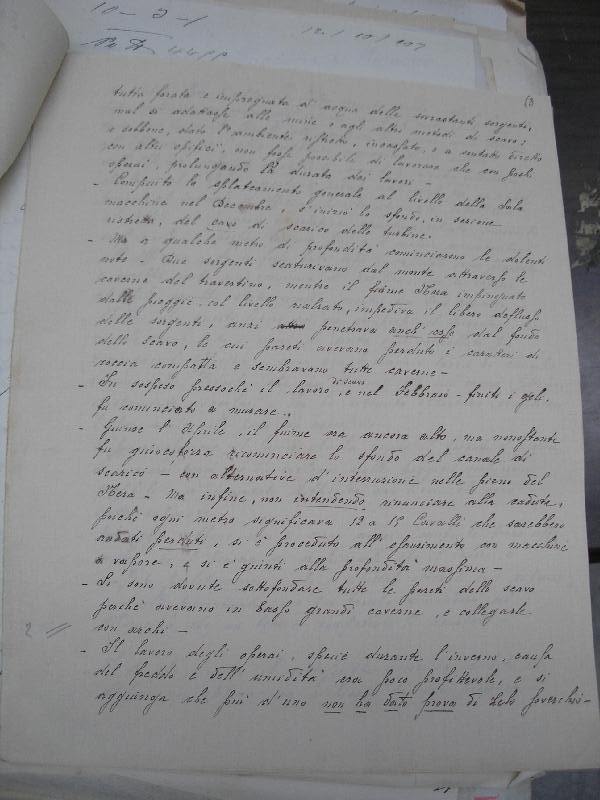 10-3-1
tutta forata e impregnata d'acqua delle sovrastanti sorgenti,
mal si adattasse alle mine e agli altri metodi di scavo;
e sebbene, dato l'ambiente ristretto, incassato, e a contatto diretto
con altri opifici, non fosse possibile di lavorare che con pochi
operai, prolungando la durata dei lavori -
- Compiuto lo splateamento generale al livello della Sala
macchine nel Decembre s'iniziò lo sfondo, in sezione
ristretta, del cavo di scarico delle turbine.
- Ma a qualche metro di profondità cominciarono le dolenti
note - Due sorgenti scaturivano dal monte attraverso le
caverne del travertino, mentre il fiume Nera impinguato
dalle pioggie, col livello rialzato, impediva il libero deflusso
delle sorgenti, anzi penetrava anch'esso dal fondo
dello scavo, le cui pareti avevano perduto i caratteri di
roccia compatta e sembravano tutte caverne -
- Fu sospeso pressochè il lavoro di scavo, e nel Febbraio - finiti i geli,
fu cominciato a murare.
- Giunse l'Aprile, il fiume era ancora alto, ma nonostante
fu giuocoforza ricominciare lo sfondo del canale di
scarico - con alternative d'interruzione nelle piene del
Nera - Ma infine, non intendendo rinunciare alla caduta,
poichè ogni metro significava 12 a 15 Cavalli che sarebbero
andati perduti, si è proceduto all'esaurimento con macchine
a vapore, e si è giunti alla profondità massima -
- Si sono dovute sottofondare tutte le pareti dello scavo
perchè avevano in basso grandi caverne, e collegarle
con archi -
2
- Il lavoro degli operai, specie durante l'inverno, causa
del freddo e dell'umidità era poco profittevole, e si
aggiunga che più d'uno non ha dato prova di zelo soverchio -